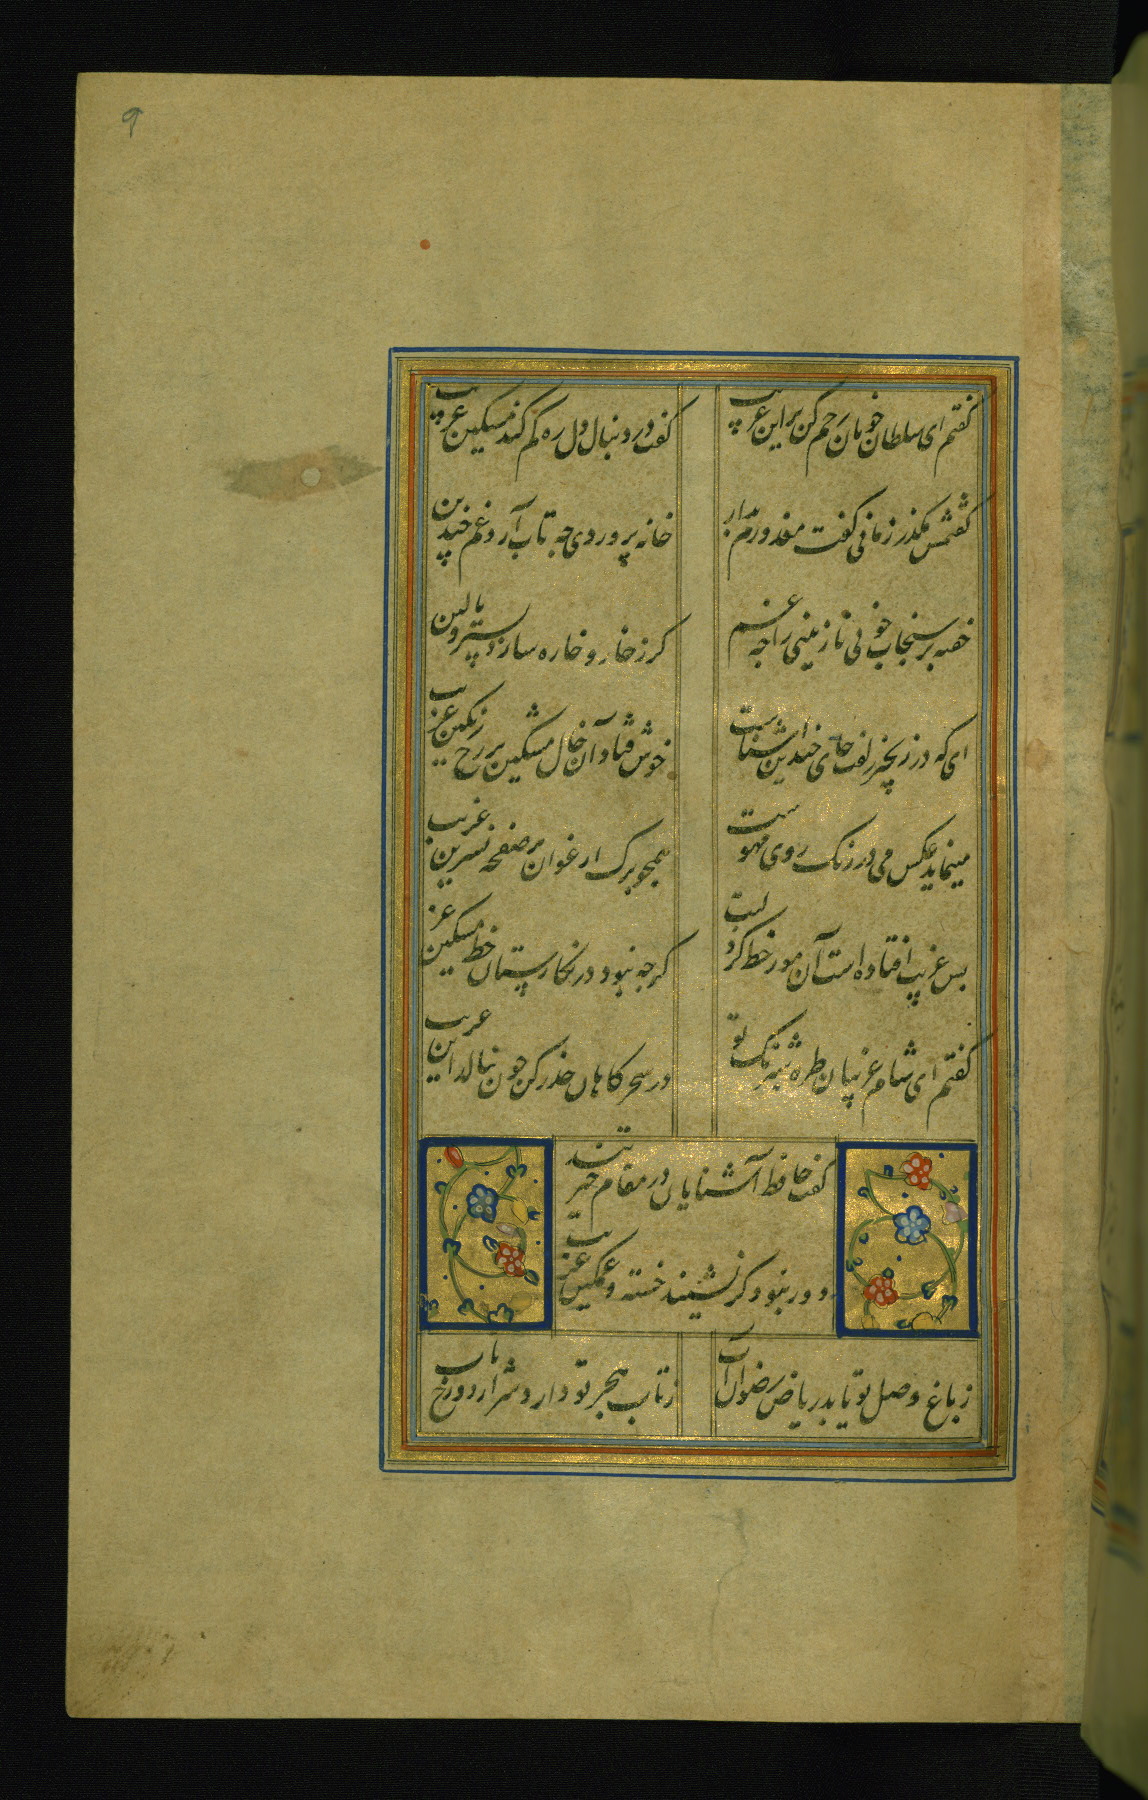 ۹
گفتم ای سلطان خوبان رحم کن بر این غریب
گفت در دنبال دل ره گم کند مسکین غریب
گفتمش مگذر زمانی گفت معذورم بدار
خانه پروردی چه تاب آرد غم چندین
خفته بر سنجاب خوبی نازنینی را چه غم
گر ز خار و خاره سازد بستر و بالین
ای که در زنجیر زلفت جای چندین آشناست
خوش فتاد آن خال مشکین بر رخ رنگین غریب
مینماید عکس می در رنگ روی مهوشت
همچو برگ ارغوان بر صفحه نسرین غریب
بس غریب افتاده است آن مور خط گرد لبت
گرچه نبود در نگارستان خط مشکین غریب
گفتم ای شام غریبان طره شبرنگ تو
در سحرگاهان حذر کن چون بنالد این غریب
گفت حافظ آشنایان در مقام حیرتند
دور نبود گر نشیند خسته و غمگین غریب
ز باغ وصل تو یابد ریاض رضوان آب
ز تاب هجر تو دارد شرار دوزخ تاب